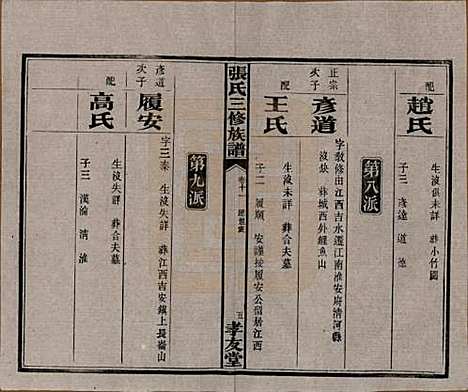 配 趙氏
生沒俱未詳 葬小竹園
子三 彥達 道 達
第八派
正宗次子 彥道
字敦修由江西吉水遷江南淮安府清河縣
沒缺 葬城西外鯉魚山
配 王氏
生沒未詳 葬合夫墓
子二 履順 安謹按履安公留居江西
張氏三修族譜
卷十一
五
孝友堂
第九派
彥道次子 履安
字三泰 生沒失詳 葬江西吉安鎮上長崙山
配 高氏
生沒失詳 葬合夫墓
子三 漢 淪 清 淮